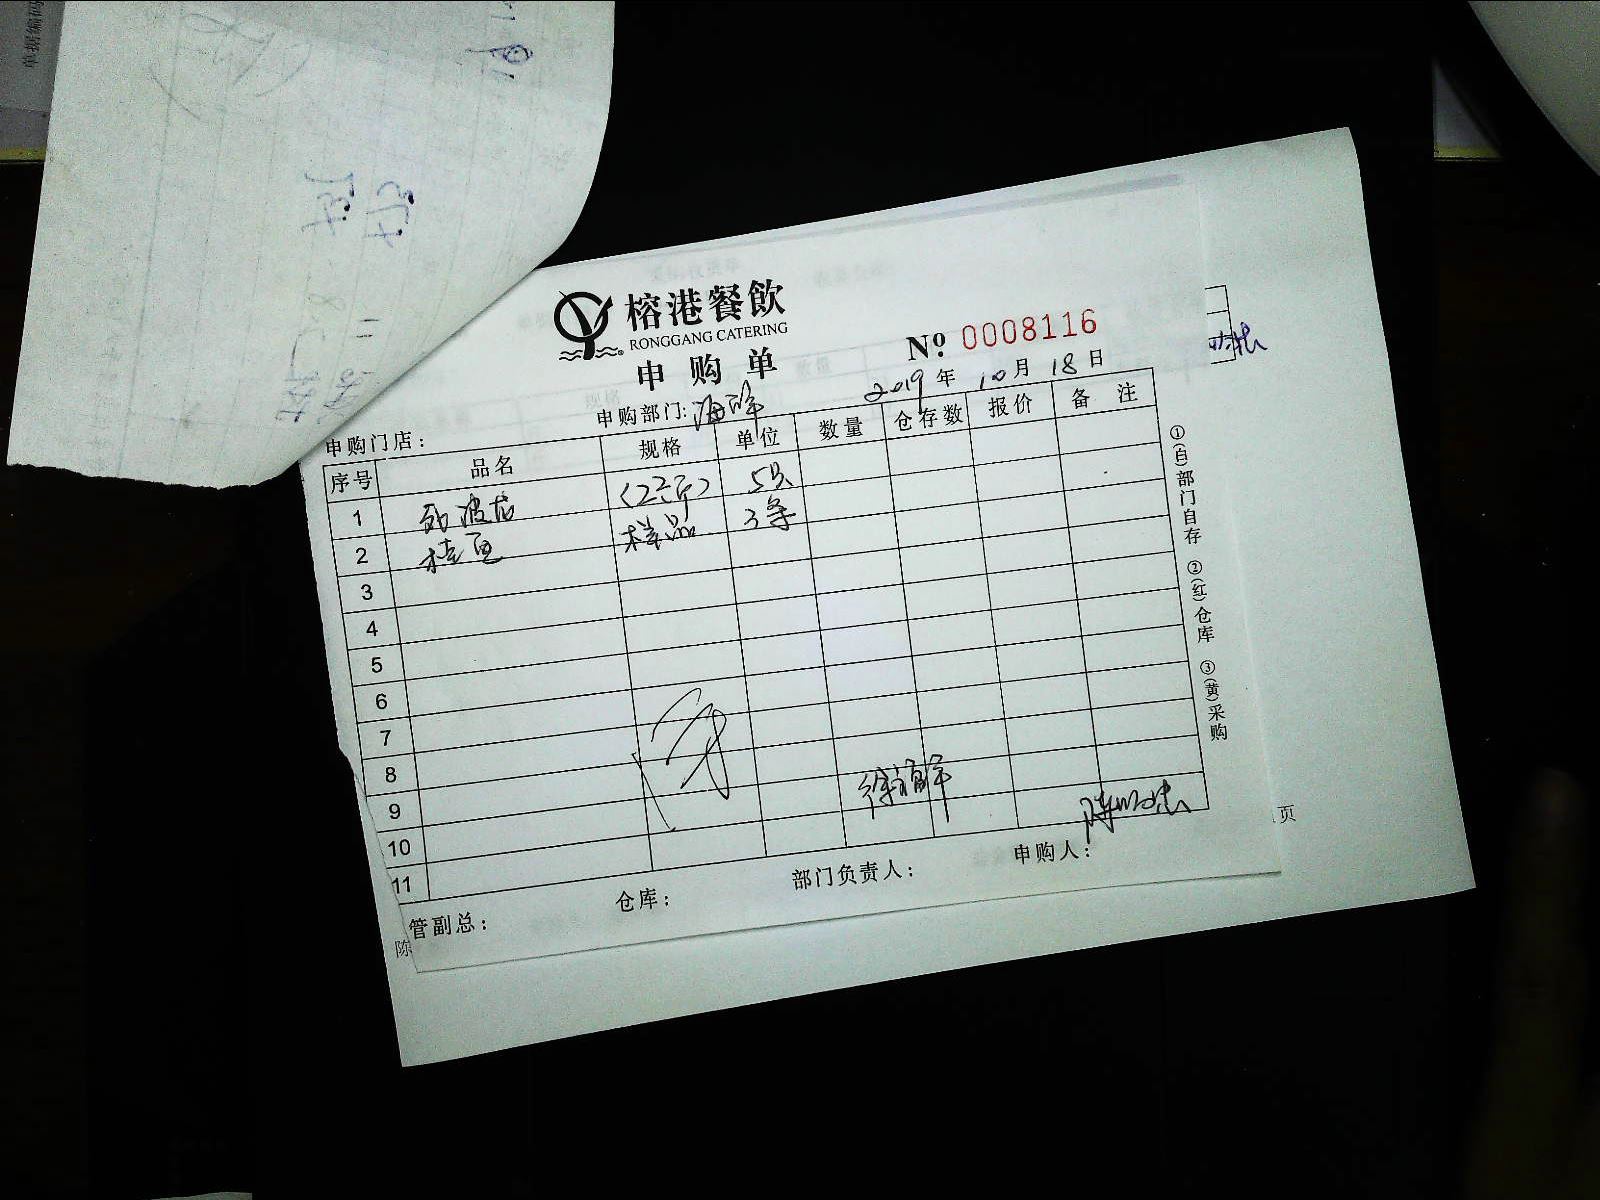 单据编码
榕港餐飲
RONGGANG CATERING
申购单
№ 0008116
2019年 10月 18日
申购门店：
申购部门：海鲜
序号 品名 规格 单位 数量 仓存数 报价 备注
1 波龙 (2斤) 5只
2 桂鱼 样品 3条
3
4
5
6
7
8
9
10
11
管副总：
仓库：
部门负责人：
申购人：
①(白)部门自存 ②(红)仓库 ③(黄)采购
陈
页